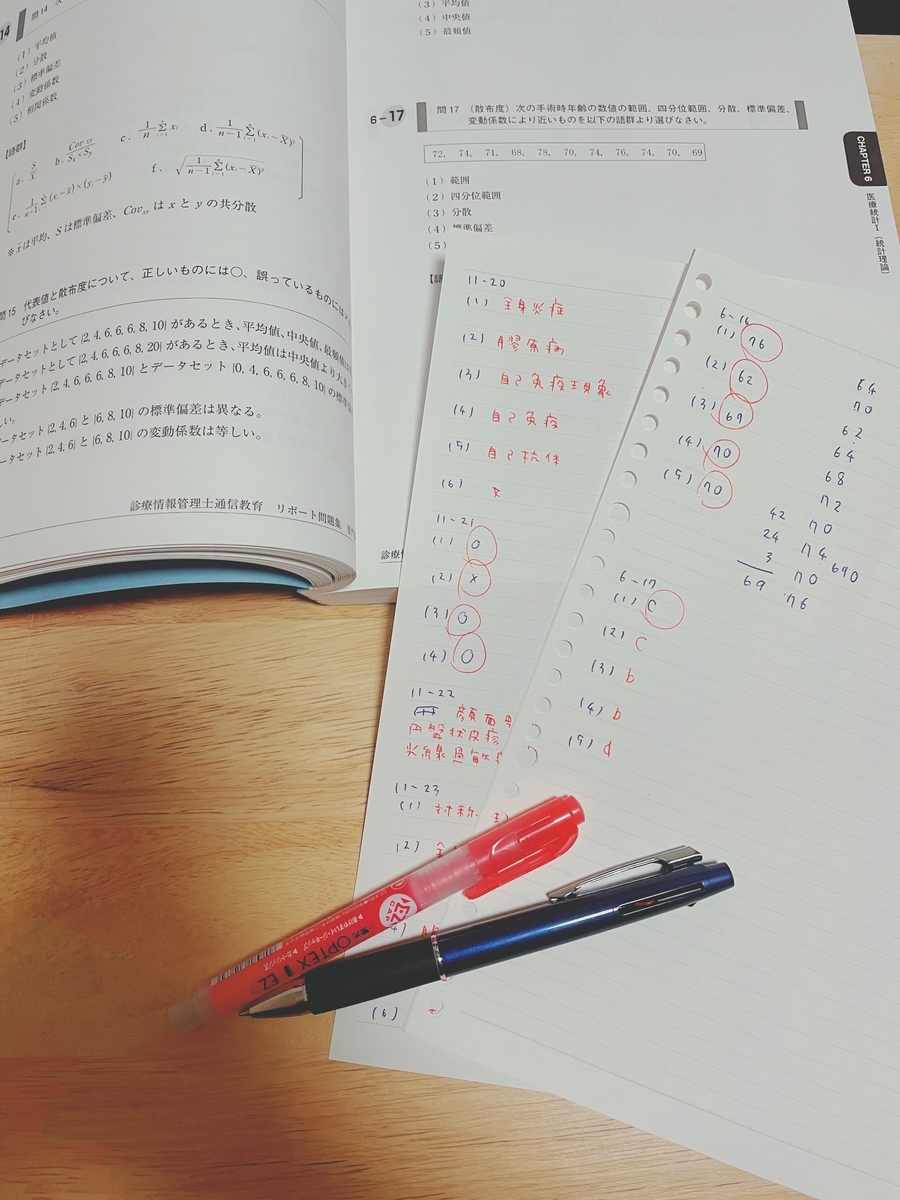 14
問14
(1) 平均値
(2) 分散
(3) 標準偏差
(4) 変動係数
(5) 相関係数
【語群】
a. S/X̄ b. Cov xy/Sx×Sy c. 1/n Σxi d. 1/n−1 Σ(xi−X̄)²
e. 1/n−1 Σ(xi−x̄)×(yi−ȳ) f. √1/n−1 Σ(xi−X̄)²
※x̄は平均、Sは標準偏差、Covxyはxとyの共分散
問15 代表値と散布度について、正しいものには○、誤っているものには
びなさい。
データセットとして{2, 4, 6, 6, 6, 8, 10}があるとき、平均値、中央値、最頻値
データセットとして{2, 4, 6, 6, 6, 8, 20}があるとき、平均値は中央値より大き
データセット{2, 4, 6, 6, 6, 8, 10}とデータセット{0, 4, 6, 6, 6, 8, 10}の標準
しい。
データセット{2, 4, 6}と{6, 8, 10}の標準偏差は異なる。
データセット{2, 4, 6}と{6, 8, 10}の変動係数は等しい。
診療情報管理士通信教育 リポート問題集
(3) 平均値
(4) 中央値
(5) 最頻値
6-17
問17 (散布度) 次の手術時年齢の数値の範囲、四分位範囲、分散、標準偏差、
変動係数により近いものを以下の語群より選びなさい。
72, 74, 71, 68, 78, 70, 74, 76, 74, 70, 69
(1) 範囲
(2) 四分位範囲
(3) 分散
(4) 標準偏差
(5)
CHAPTER 6
医療統計Ⅰ(統計理論)
診療情
11-20
(1) 全身炎症
(2) 膠原病
(3) 自己免疫現象
(4) 自己免疫
(5) 自己抗体
(6)
11-21
(1) ○
(2) ×
(3) ○
(4) ○
11-22
顔面
円盤状皮疹
光線過敏
11-23
(1) 対称
(2) 全
(6)
6-16
(1) 76
(2) 62
(3) 69
(4) 70
(5) 70
64
70
62
64
68
72
70
74
70
76
690
42
24
3
69
6-17
(1) C
(2) C
(3) b
(4) b
(5) d
OPTEX EZ